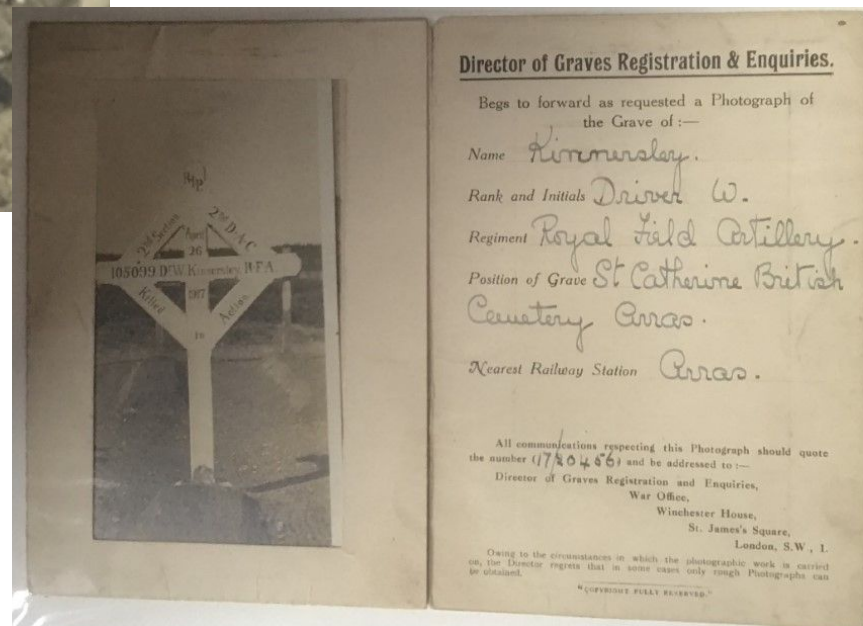 RIP
2nd Section 2nd D.A.C
April
26
105099 Dr W. Kinnersley. R.F.A.
1917
Killed in Action
Director of Graves Registration & Enquiries.
Begs to forward as requested a Photograph of
the Grave of :—
Name Kinnersley.
Rank and Initials Driver W.
Regiment Royal Field Artillery.
Position of Grave St Catherine British
Cemetery Arras.
Nearest Railway Station Arras.
All communications respecting this Photograph should quote
the number (17/20456) and be addressed to :—
Director of Graves Registration and Enquiries,
War Office,
Winchester House,
St. James's Square,
London, S.W, 1.
Owing to the circumstances in which the photographic work is carried
on, the Director regrets that in some cases only rough Photographs can
be obtained.
"COPYRIGHT FULLY RESERVED."